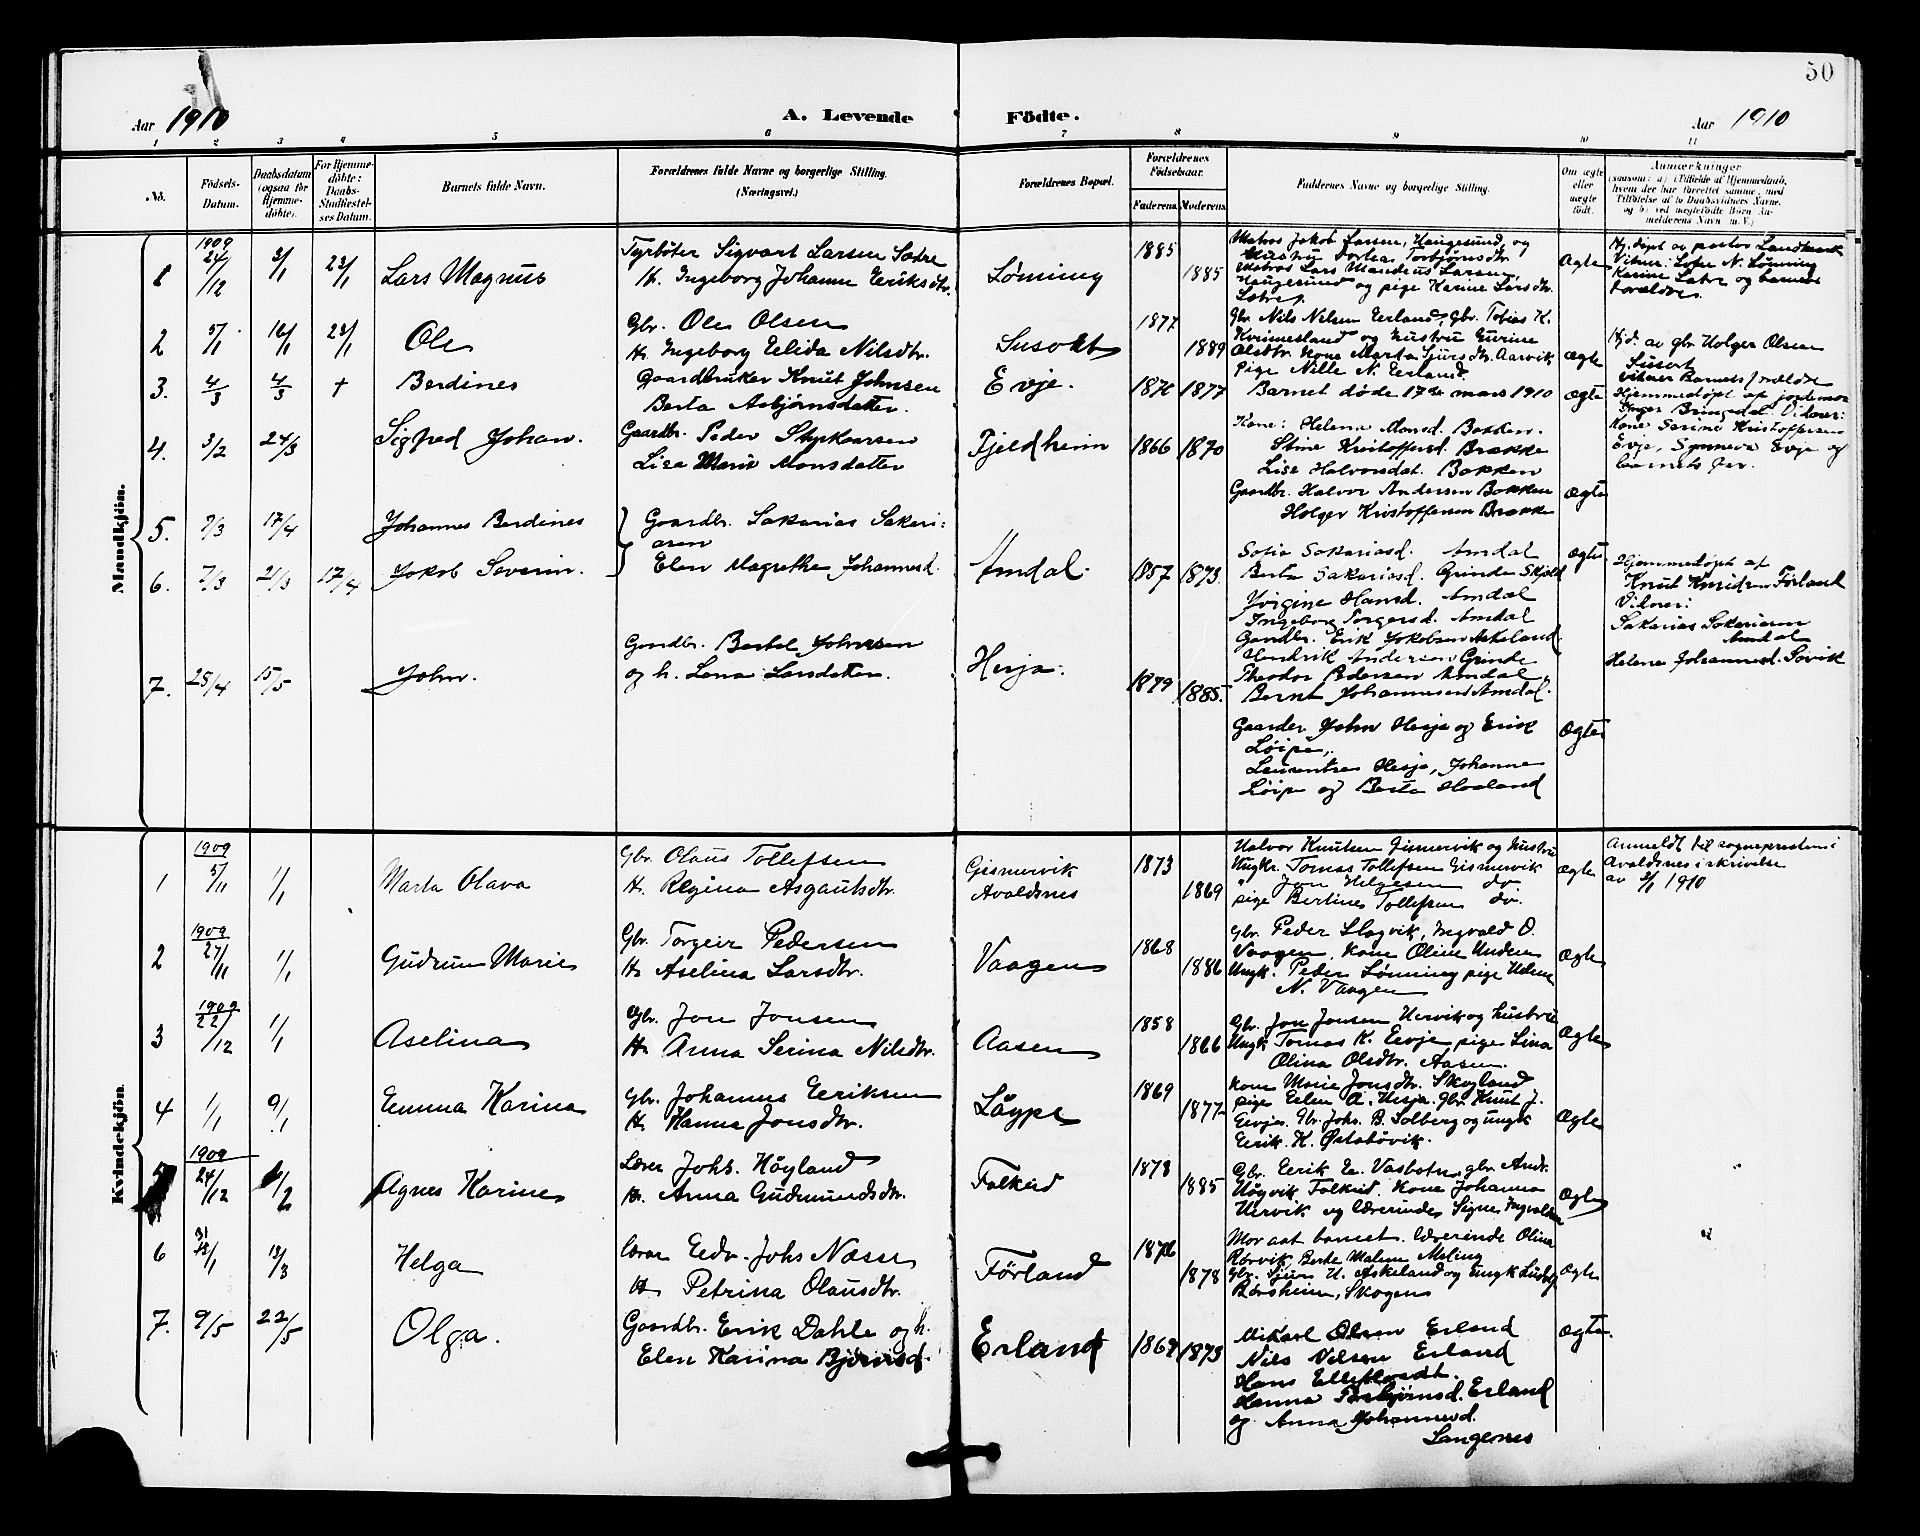 50
Aar 1910
A. Levende Födte.
Aar 1910
1 2 3 4 5 6 7 8 9 10 11
No.
Födsels-Datum.
Daabsdatum (ogsaa for Hjemmedöbte).
For Hjemmedöbte: Daabs-Stadfæstelses Datum.
Barnets fulde Navn.
Forældrenes fulde Navne og borgerlige Stilling. (Næringsvei.)
Forældrenes Bopæl.
Forældrenes Födselsaar.
Faderens. Moderens.
Faddernes Navne og borgerlige Stilling.
Om ægte eller uægte födt.
Anmærkninger
(saasom: a) i Tilfælde af Hjemmedaab, hvem der har forrettet samme, med Tilföielse af to Daabsvidners Navne, og b) ved uægtefödte Börn Anmelderens Navn m. V.)
Mandkjön.
1 1909 24/12 3/1 23/1 Lars Magnus
Tyrbøter Sigvart Larsen Sætre
H. Ingeborg Johanne Eriksdtr.
Lønning 1885 1885
Matros Jakob Larsen, Haugesund, og
Hustru Dortea Torbjørnsdtr
Matros Lars Mandeus Larsen,
Haugesund og pige Karine Larsdtr.
Sætre
Ægte
Hj. døpt av pastor Landmark
Vitner: Lofer N. Lønning
Karine Sætre og barnets
forældre.
2 5/1 16/1 23/1 Ole
Gbr. Ole Olsen
H. Ingeborg Elida Nilsdtr.
Susort 1877 1889
Gbr. Nils Nilsen Eerland, Gbr. Tobias K.
Kvinnesland og hustru Gurine
Olsdtr. Kone Marta Sjursdtr. Aarvik
pige Nille N. Eerland.
Ægte
Hjd. av gbr Holger Olsen
Susort
Vitner Barnets forældre
3. 4/3 4/3 + Berdines
Gaardbruker Knut Johnsen
Berta Asbjørnsdatter.
Evje. 1876 1877
Barnet døde 17de mars 1910
Ægte
Hjemmedøpt af jordemor
Inger Bringedal. Vidner:
Kone Serine Kristoffersen
Evje, Synneva Evje og
barnets far.
4. 3/2 24/3 Sigfred Johan.
Gaardbr. Peder Styrkaarsen
Lise Marie Monsdatter
Fjeldheim 1866 1870
Kone: Helena Monsd. Bakken.
Stine Kristoffersd. Brække
Lise Halvorsdat. Bakken
Gaardbr. Halvor Andersen Bakken
Holger Kristoffersen Brække
Ægte
5. 7/3 17/4 Johannes Berdines
Gaardbr. Sakarias Sakariasen
Elen Magrethe Johannesd.
6. 7/3 21/3 17/4 Jakob Severin.
Amdal. 1857 1873
Sofia Sakariasd. Amdal
Berta Sakariasd. Grinde Skjold
Jørgine Hansd. Amdal
Ingeborg Torgersd. Amdal
Gaardbr. Erik Jokobsen Askeland
Hendrik Andersen Grinde
Theodor Pedersen Amdal
Bernt Johannesen Amdal.
Ægte
Hjemmedøpt af
Knut Knudsen Førland
Vidner:
Sakarias Sakariasen
Amdal
Helene Johannesd. Søvik
7. 25/4 15/5 John.
Gaardbr. Bertel Johnsen
og h. Lena Larsdatter.
Hesja. 1879 1885.
Gaarder John Hesja og Erik
Løipe,
Laurentse Hesja, Johanne
Løipe og Berta Haaland
Ægte
Kvindekjön
1 1909 5/11 1/1 Marta Olava
Gbr. Olaus Tollefsen
H. Regina Asgautsdtr.
Gismervik
Avaldsnes
1873 1869
Halvor Knutsen Gismervik og hustru
Ungkr. Tomas Tollefsen Gismervik
" Jon Helgesen do.
pige Bertines Tollefsen do.
Ægte
Anmeldt til sognepresten i
Avaldsnes i skrivelse
av 3/1 1910
2 1909 27/11 1/1 Gudrun Marie
Gbr. Torgeir Pedersen
H. Aselina Larsdtr.
Vaagen 1868 1886
Gbr. Peder Slagvik, Ingvald O.
Vaagen, Kone Oline
Ungk. Peder Lønning pige
N. Vaagen
Ægte
3 1909 22/12 1/1 Aselina
Gbr. Jon Jonsen
H. Anna Serina Nilsdtr.
Aasen 1858 1866
Gbr. Jon Jonsen Hervik og hustru
Ungk Tomas K. Eevje, pige Lina
Olina Olsdtr. Aasen.
Ægte
4 1/1 9/1 Emma Karina
Gbr. Johannes Eeriksen
H. Hanna Jonsdtr.
Løype 1869 1877
Kone Marie Jonsdtr. Skogland
pige Eelen A. Hesja. Gbr. Knut J.
Eevje. Gbr. Johs. B. Solberg og ungk
Eerik. K. Østabøvik.
Ægte
5 1909 24/12 6/2 Agnes Karine
Lærer Johs. Høyland
H. Anna Gudmundsdtr.
Falkeid 1878 1885
Gbr. Eerik E. Vasbotn, gbr. Andr.
Høgvik Falkeid. Kone Johanna
Hervik og lærerinde Signe Ingvaldsen
Ægte
6 31/1 13/3 Helga
Lærer Eedv. Johs Næss
H. Petrina Olausdtr.
Førland 1876 1878
Mor aat barnet. Lærerinde Olina
Rørvik, Berte Malene Meling
Gbr. Sjurs H. Askeland og Ungk Ludvig
Børsheim, Skogen
Ægte
7. 9/5 22/5 Olga.
Gaardbr. Erik Dahle og h.
Elen Karina Bjørnsd.
Erland 1869 1873
Mikael Olsen Erland
Nils Nilsen Erland
Hans
Hanna Torbjørnsd. Erland
og Anna Johannesd.
Langenes
Ægte.